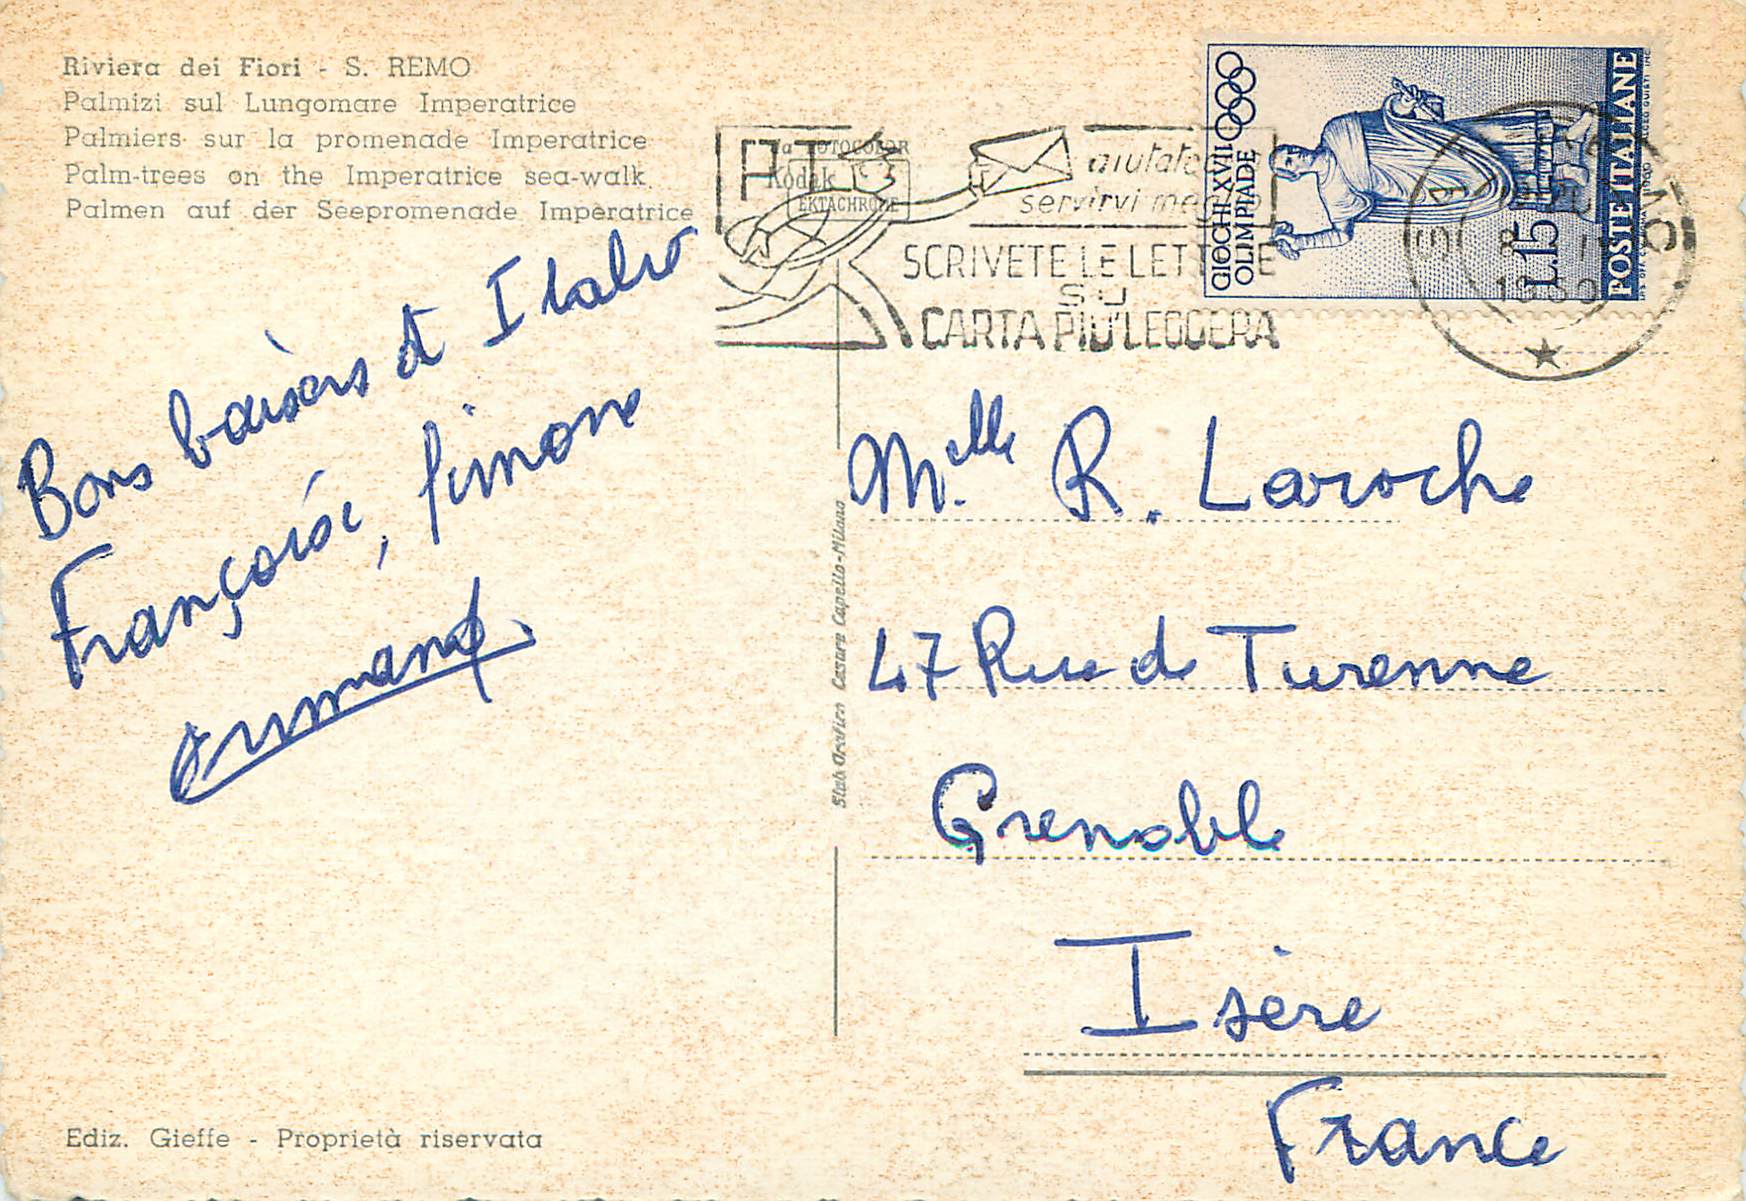 Riviera dei Fiori - S. REMO
Palmizi sul Lungomare Imperatrice
Palmiers sur la promenade Imperatrice
Palm-trees on the Imperatrice sea-walk
Palmen auf der Seepromenade Imperatrice
Bons baisers d Italie
Françoise, Simone
Armand
Ediz. Gieffe - Proprietà riservata
Stab Grafico Cesare Capello-Milano
FOTOCOLOR
Kodak
EKTACHROME
PT
aiutate
servirvi meglio
SCRIVETE LE LETTERE
SU
CARTA PIU' LEGGERA
GIOCHI XVII
OLIMPIADE
L.15
POSTE ITALIANE
Mlle R. Laroche
47 Rue de Turenne
Grenoble
Isère
France